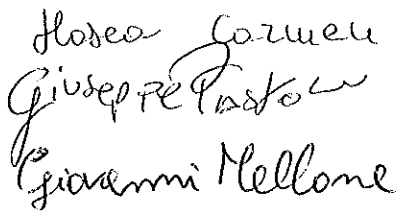 Hosea Carmen
Giuseppe Pastore
Giovanni Mellone